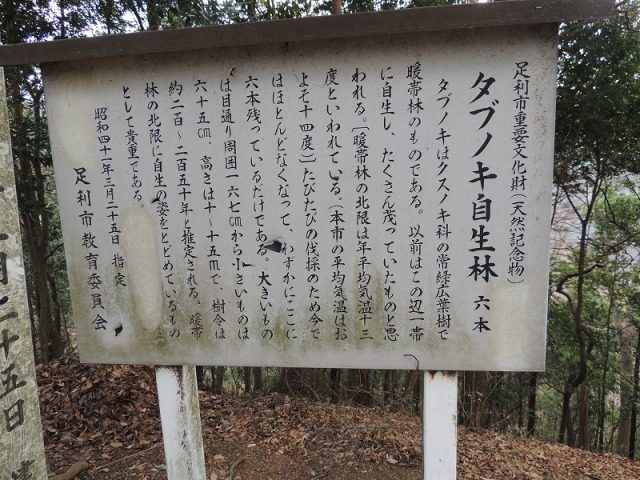 足利市重要文化財(天然記念物)
タブノキ自生林 六本
タブノキはクスノキ科の常緑広葉樹で
暖帯林のものである。以前はこの辺一帯
に自生し、たくさん茂っていたものと思
われる。(暖帯林の北限は年平均気温十三
度といわれている。(本市の平均気温はお
よそ十四度))たびたびの伐採のため今で
はほとんどなくなって、わずかにここに
六本残っているだけである。大きいもの
は目通り周囲一六七cmから小さいものは
六十五cm 高さは十~十五mで、樹令は
約二百~二百五十年と推定される。暖帯
林の北限に自生の姿をとどめているもの
として貴重である。
昭和四十一年三月二十五日 指定
足利市教育委員会
月二十五日